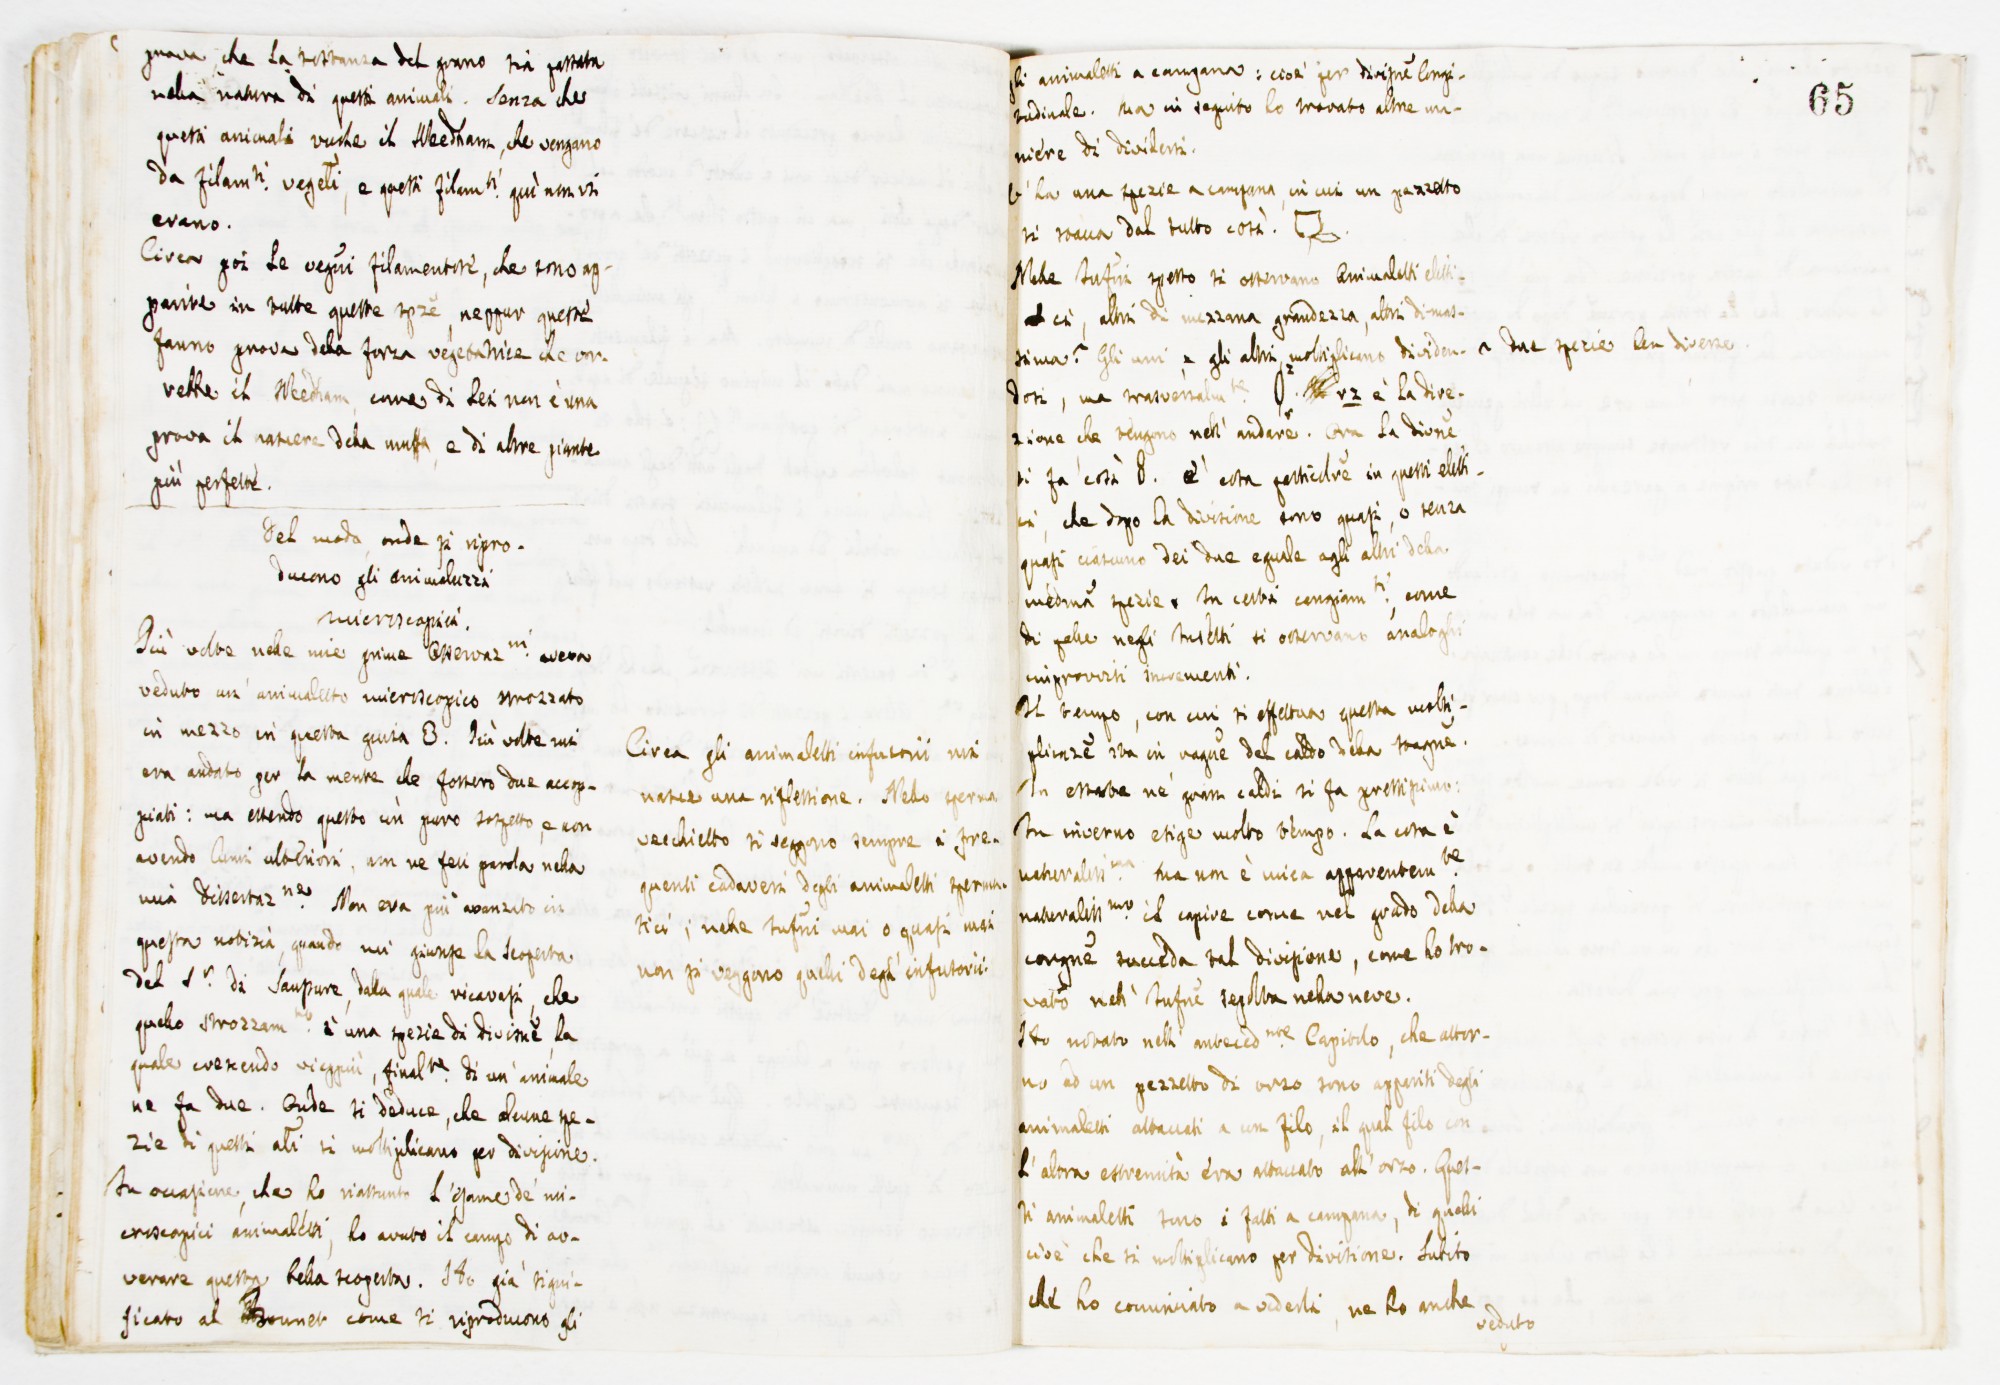 prova, che la sostanza del grano sia passata
nella natura di questi animali. Senza che
questi animali vuole il Needham, che vengano
da filam.ti vegeti, e questi filam.ti quì non vi
erano.
Circa poi le vegni filamentose, che sono ap-
parite in tutte queste spze, neppur queste
fanno prova della forza vegetatrice che vor-
rebbe il Needham, come di lei non è una
prova il nascere della muffa, e di altre piante
più perfette.
Del modo, onde si ripro-
ducono gli animaluzzi
microscopici.
Più volte nelle mie prime Osservaz.ni aveva
veduto un' animaletto microscopico strozzato
in mezzo in questa guisa 8. Più volte mi
era andato per la mente che fossero due accop-
piati: ma essendo questo un puro sospetto, e non
avendo lumi ulteriori, non ne feci parola nella
mia Dissertaz.ne Non era più avanzato in
questa notizia, quando mi giunse la scoperta
del S.r di Saussure, dalla quale ricavasi, che
quello strozzam.to è una spezie di divisne, la
quale crescendo vieppiù, final.te di un' animale
ne fa due. Onde si deduce, che alcune spe-
zie di questi ali si moltiplicano per divisione.
In occasione, che ho riassunto l'esame de' mi-
croscopici animaletti, ho avuto il campo di av-
verare questa bella scoperta. Ho già signi-
ficato al Bonnet come si riproducono gli
Circa gli animaletti infusorii mi
nasce una riflessione. Nello sperma
vecchietto si veggono sempre i fre-
quenti cadaveri degli animaletti sperma-
tici; nelle Infuni mai o quasi mai
non si veggono quelli degl'infusorii.
65
gli animaletti a campana: cioè per divisne longi-
tudinale. Ma in seguito ho trovato altre ma-
niere di dividersi.
V'ha una spezie a campana, in cui un pezzetto
si stacca dal tutto così.
Nelle Infuni spesso si osservano Animaletti elitti-
ci, altri di mezzana grandezza, altri di mas-
sima ^ Gli uni, e gli altri moltiplicano dividen-
^ due spezie ben diverse.
dosi, ma trasversalm.te rz è la dire-
zione che tengono nell' andare. Ora la divne
si fa così 8. È cosa particolre in questi elitti-
ci, che dopo la divisione sono quasi, o senza
quasi ciascuno dei due eguale agli altri della
medma spezie. In certi cangiam.ti, come
di pelle negli Insetti si osservano analoghi
improvvisi incrementi.
Il tempo, con cui si effettua questa molti-
plicaze sta in ragne del caldo della stagne.
In estate ne' gran caldi si fa prestissimo:
In inverno esige molto tempo. La cosa è
naturaliss.ma Ma non è mica apparentem.te
naturaliss.mo il capire come nel grado della
congne succeda tal divisione, come ho tro-
vato nell' Infune sepolta nella neve.
Ho notato nell' anteced.nte Capitolo, che attor-
no ad un pezzetto di orzo sono appariti degli
animaletti attaccati a un filo, il qual filo con
l' altra estremità era attaccato all' orzo. Ques-
ti animaletti sono i fatti a campana, di quelli
cioè che si moltiplicano per divisione. Subito
che ho cominciato a vederli, ne ho anche
veduto